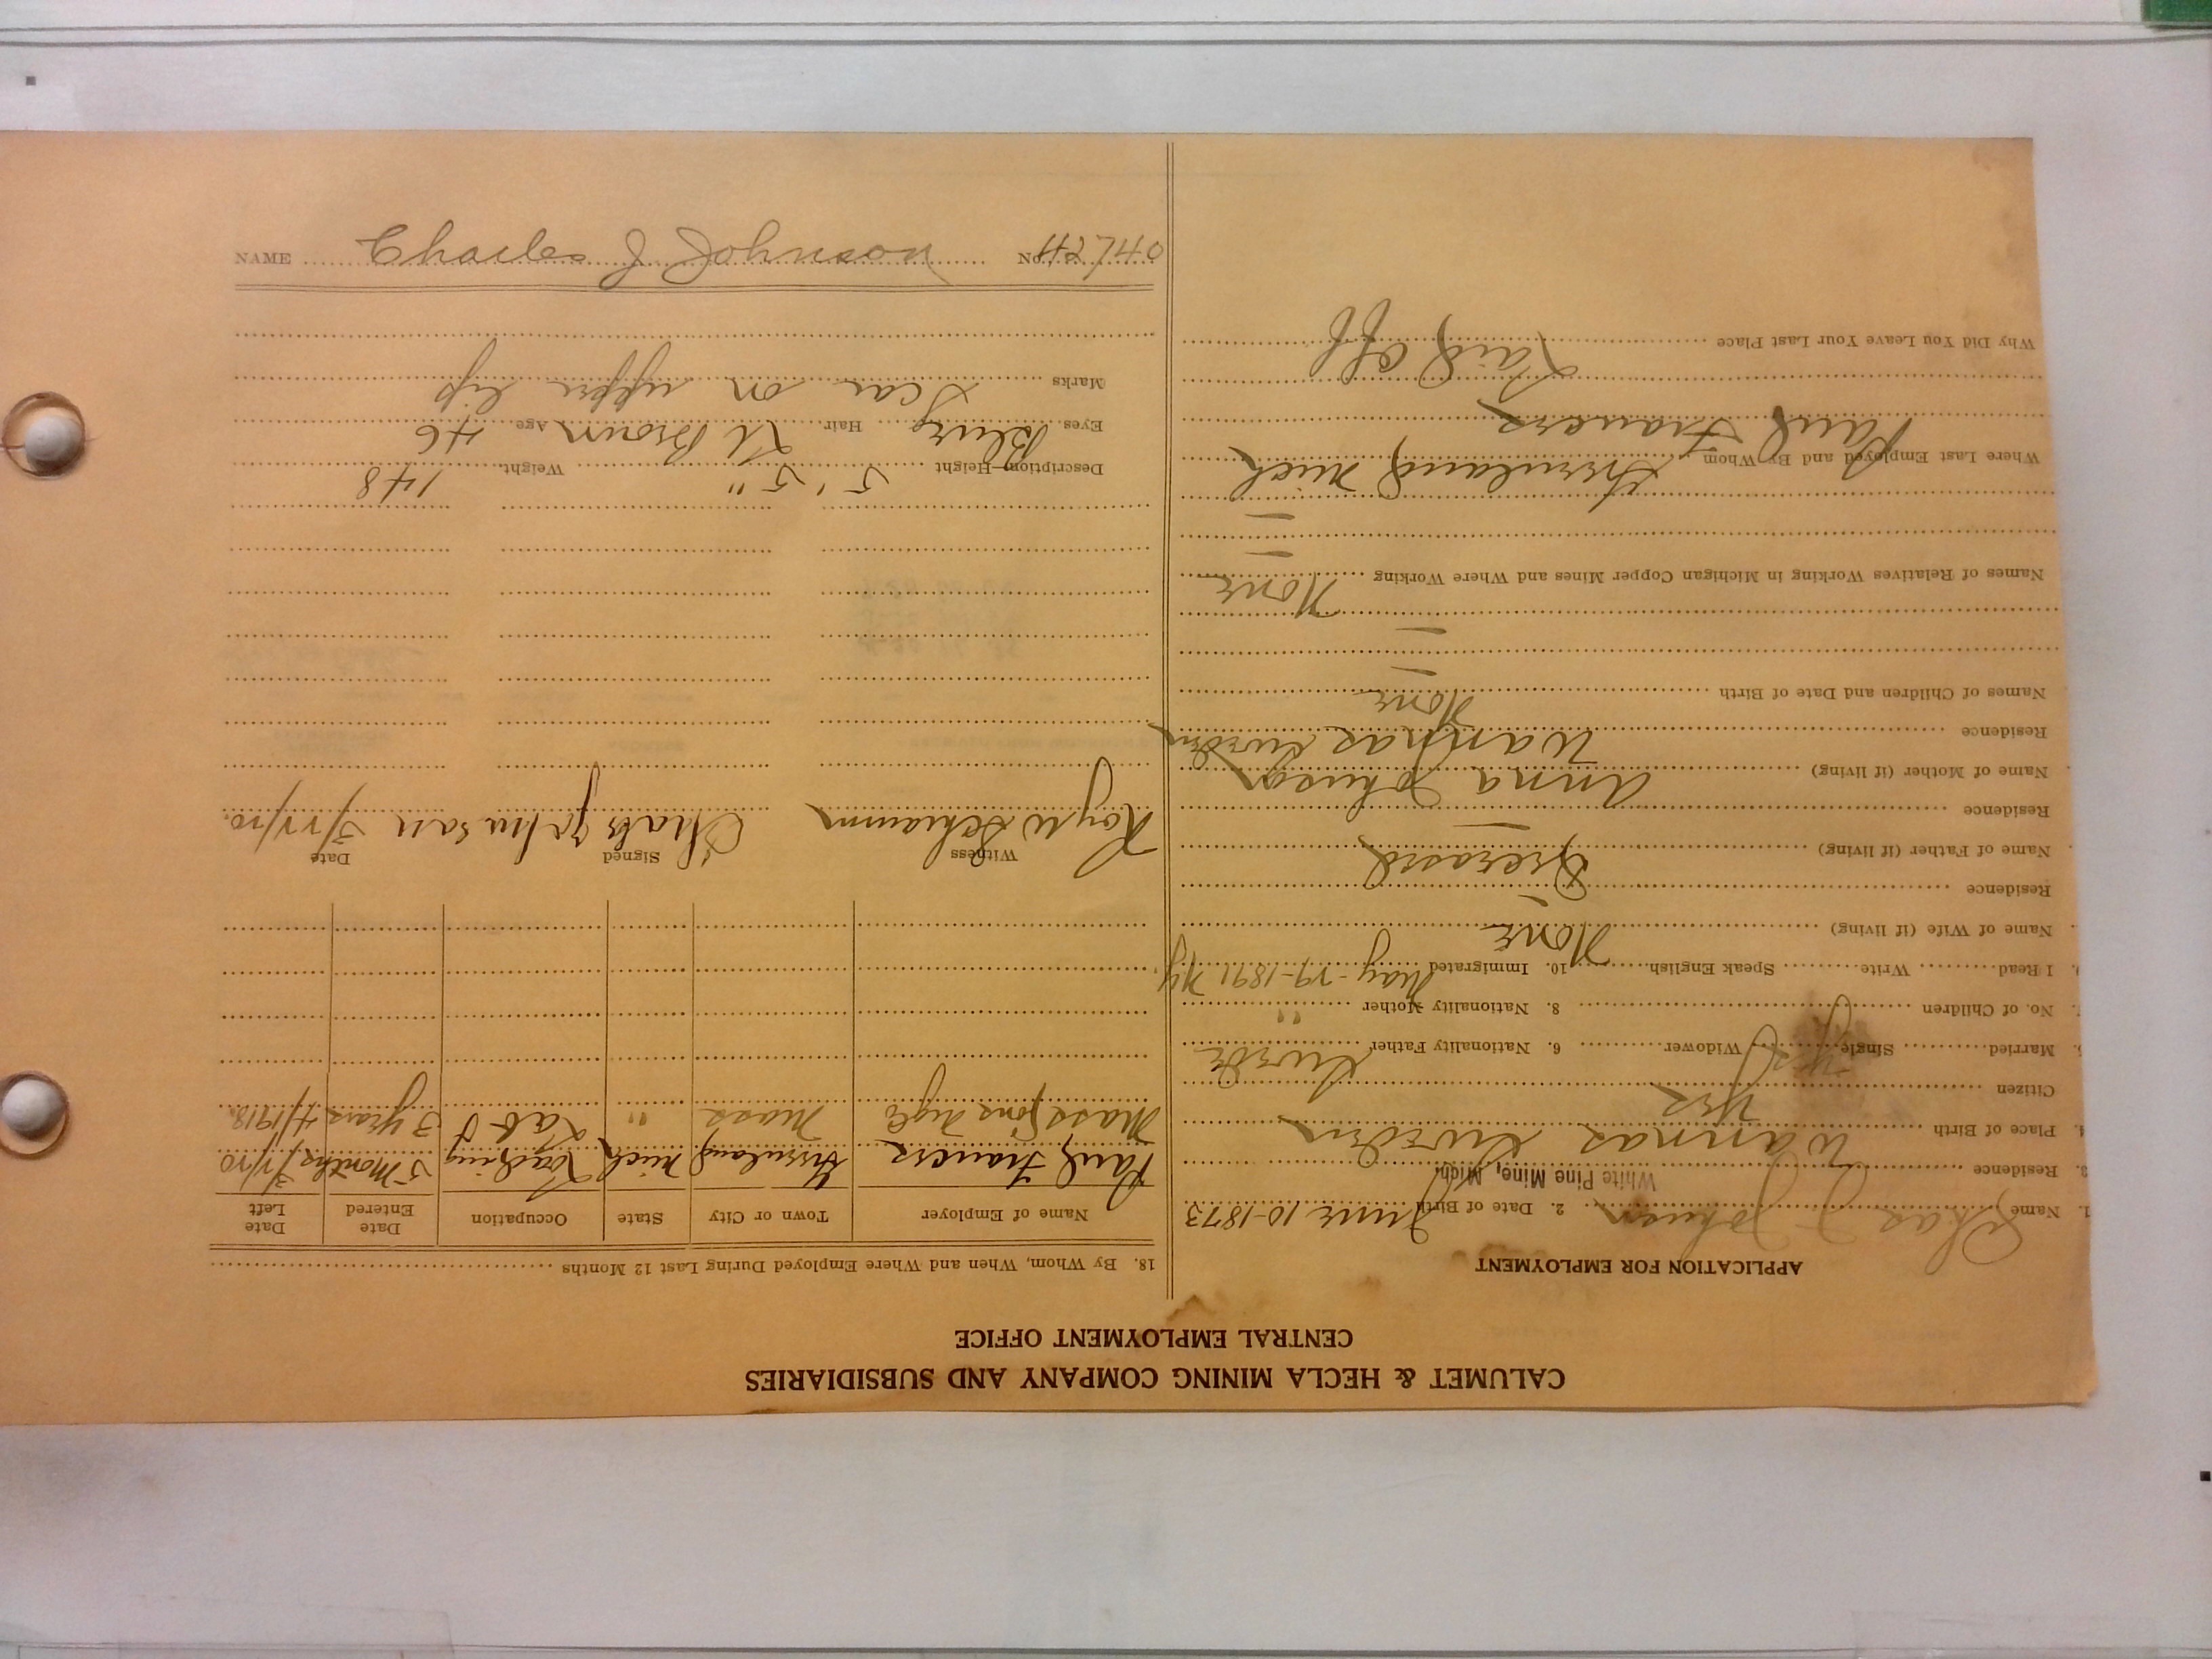 CALUMET & HECLA MINING COMPANY AND SUBSIDIARIES
CENTRAL EMPLOYMENT OFFICE
APPLICATION FOR EMPLOYMENT
1. Name Chas J Johnson 2. Date of Birth June 10-1873
3. Residence White Pine Mine, Mich.
4. Place of Birth Wannas Sweden
Citizen Yes
5. Married Single Yes Widower 6. Nationality Father Swede
7. No. of Children 8. Nationality Mother "
9. I Read Write Speak English 10. Immigrated May-29-1891 NY.
Name of Wife (if living) None
Residence
Name of Father (if living) Deceased
Residence
Name of Mother (if living) Anna Johnson
Residence Wannas Sweden
Names of Children and Date of Birth None
Names of Relatives Working in Michigan Copper Mines and Where Working None
Where Last Employed and By Whom Greenland Mich
Paul Francis
Why Did You Leave Your Last Place Laid Off
18. By Whom, When and Where Employed During Last 12 Months
Name of Employer Town or City State Occupation Date Entered Date Left
Paul Francis Greenland Mich Loading 5 Months 3/1/20
Mass Cons Mass " 3 years 4/1918.
Witness Signed Date
Roy W Schramm Chals Johnson 3/22/20.
Description—Height 5' 5" Weight 148
Eyes Blue Hair Lt Brown Age 46
Marks Scar on upper lip
NAME Charles J Johnson NO. 42740